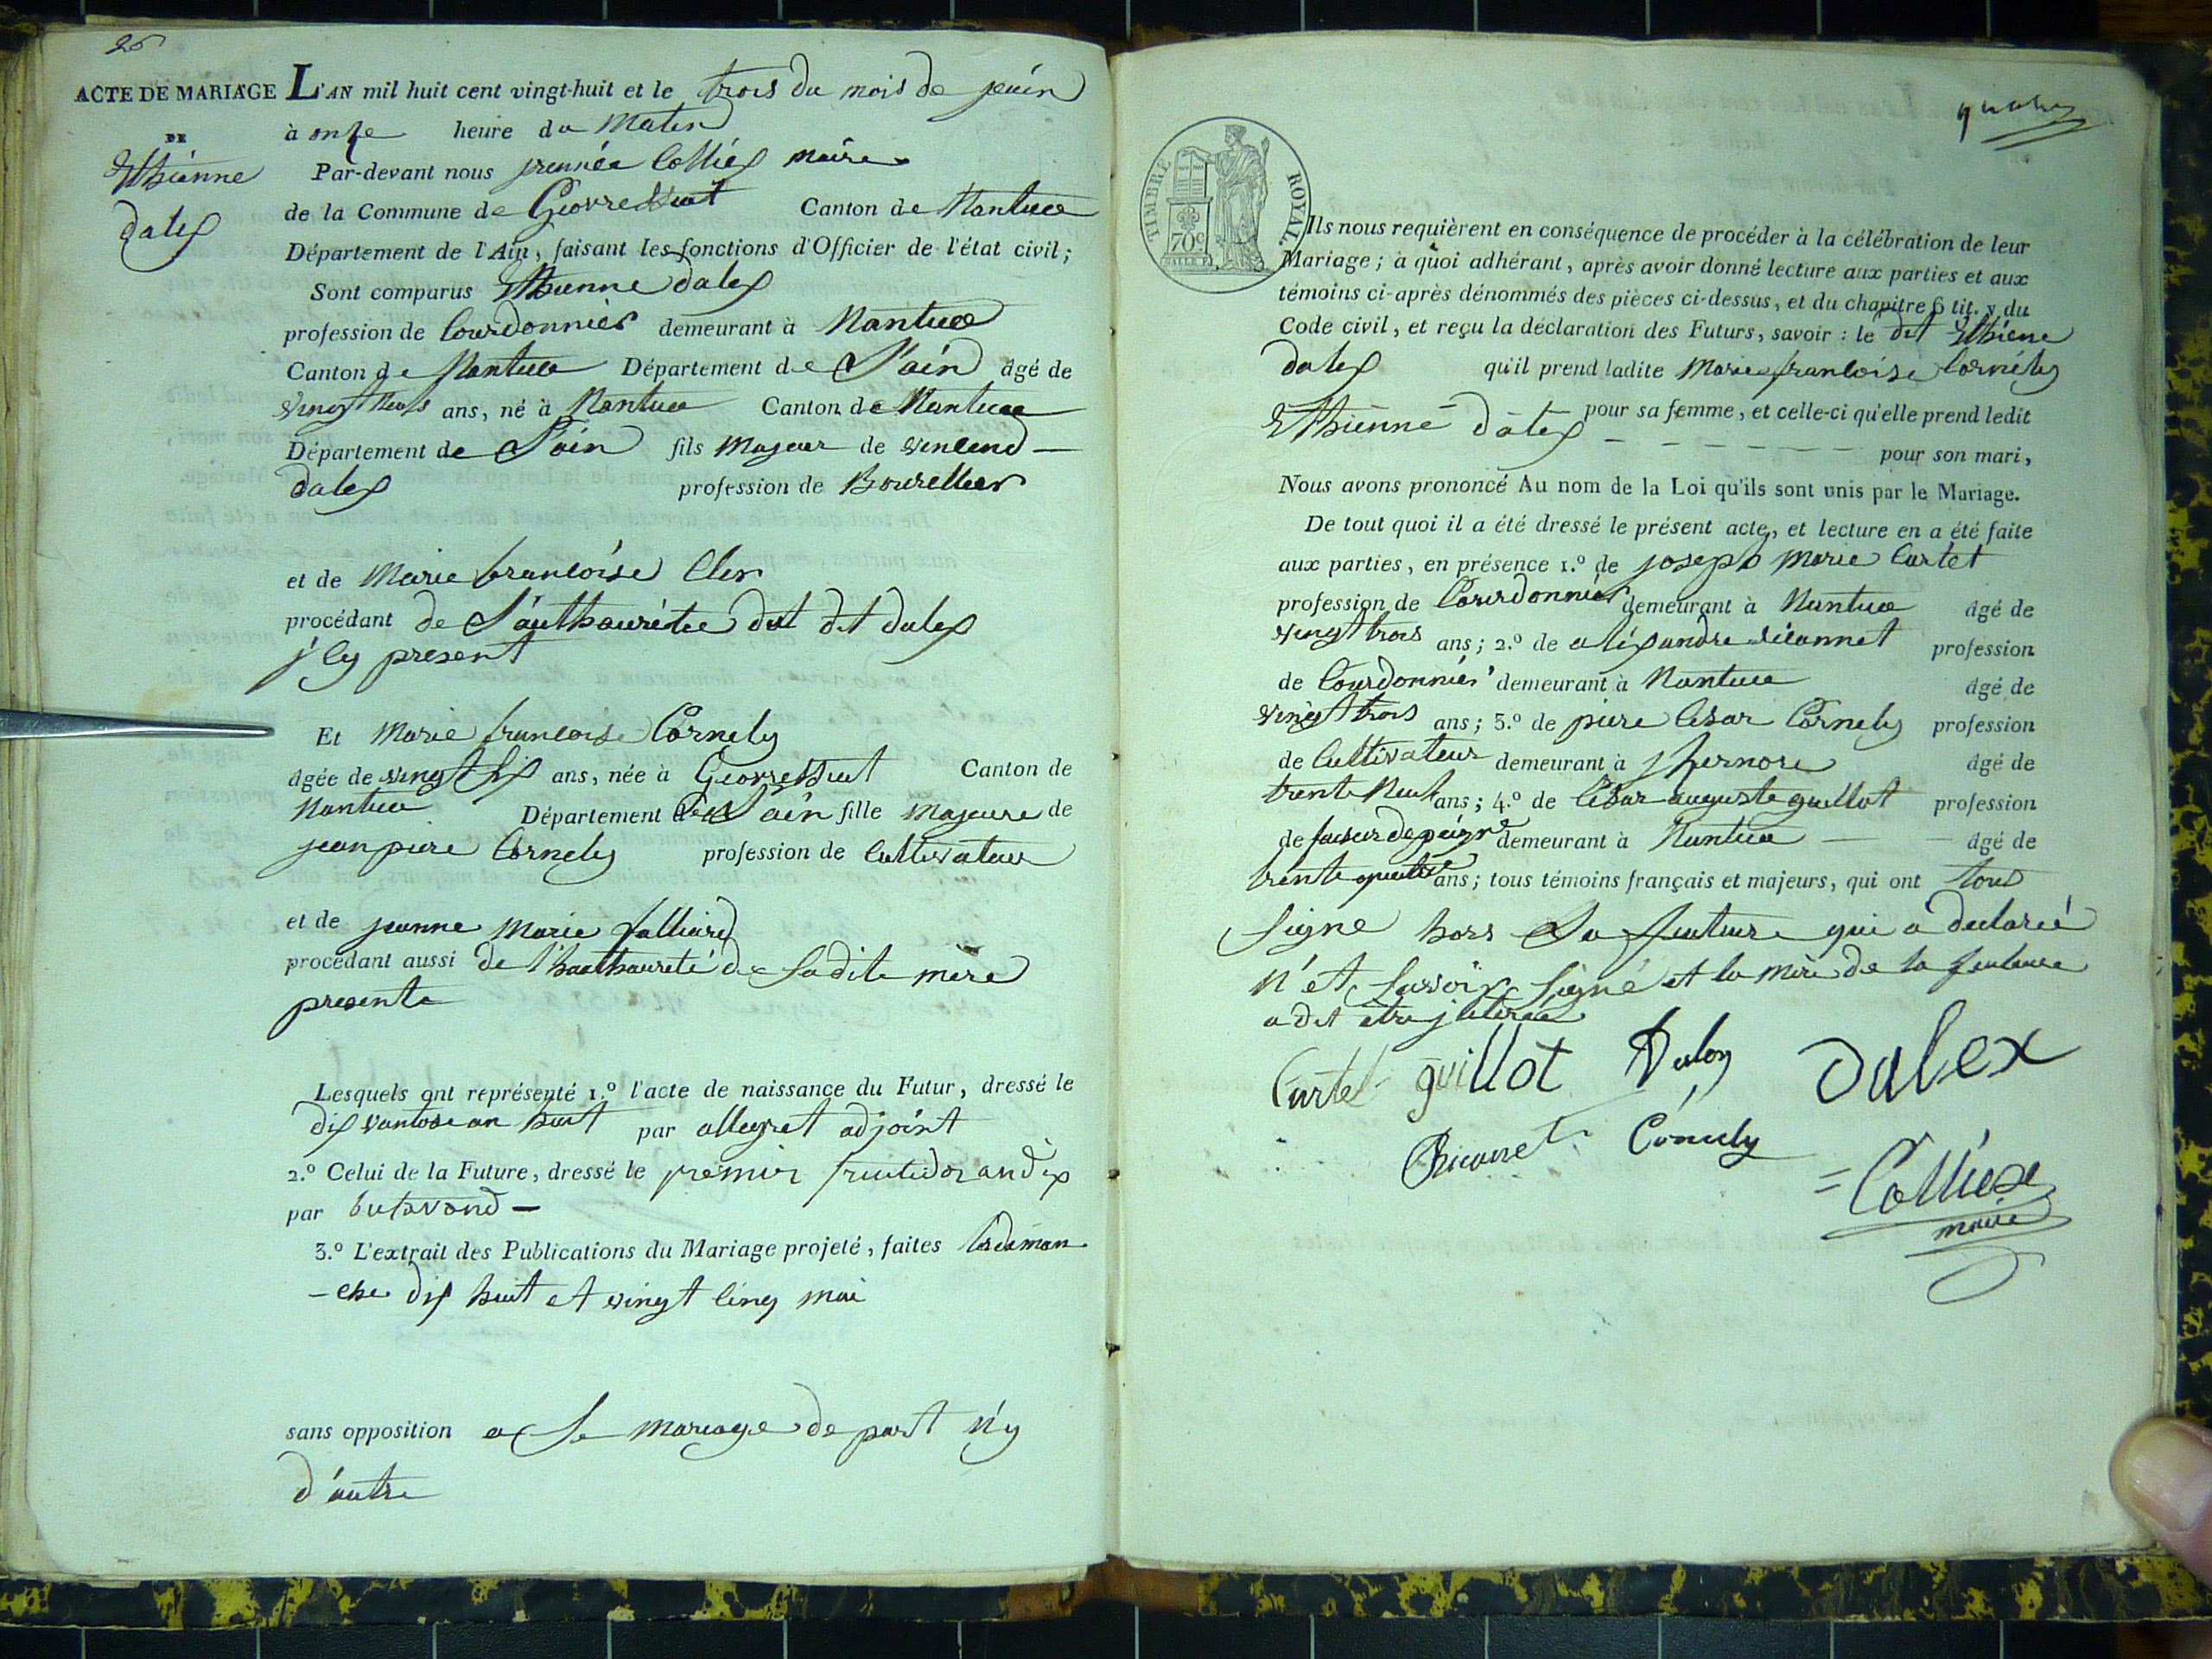 26
ACTE DE MARIAGE L'AN mil huit cent vingt-huit et le trois du mois de jeuin
DE à onze heure du matin
Ethienne Par-devant nous Collier maire
dalex de la Commune de Geovressiat Canton de Nantua
Département de l'Ain, faisant les fonctions d'Officier de l'état civil;
Sont comparus Ethienne dalex
profession de Courdonnier demeurant à Nantua
Canton de Nantua Département de L'ain âgé de
vingt huit ans, né à Nantua Canton de Nantua
Département de L'ain fils majeur de vincend
dalex profession de Bourellier
et de Marie francoise Cler
procédant de L'authaurétée dut dit dalex
j'cy present
Et Marie francoise Cornely
âgée de vingt six ans, née à Geovressiat Canton de
Nantua Département de L'ain fille majeure de
jean piere Cornely profession de Cultivateur
et de jeanne Marie
procédant aussi de l'hauthaureté de sadite mère
presente
Lesquels ont représenté 1.º l'acte de naissance du Futur, dressé le
dix vantose an huit par allegret adjoint
2.º Celui de la Future, dressé le premier fructidor an dix
par butavand
3.º L'extrait des Publications du Mariage projeté, faites les diman
-che dix huit et vingt cinq mai
sans opposition a se mariage de part n'y
d'autre
TIMBRE ROYAL
70 c
Ils nous requièrent en conséquence de procéder à la célébration de leur
Mariage; à quoi adhérant, après avoir donné lecture aux parties et aux
témoins ci-après dénommés des pièces ci-dessus, et du chapitre 6 tit. v du
Code civil, et reçu la déclaration des Futurs, savoir: le dit Ethiene
dalex qu'il prend ladite Marie francoise Cornély
pour sa femme, et celle-ci qu'elle prend ledit
Ethienne dalex pour son mari,
Nous avons prononcé Au nom de la Loi qu'ils sont unis par le Mariage.
De tout quoi il a été dressé le présent acte, et lecture en a été faite
aux parties, en présence 1.º de joseph marie Cartet
profession de Courdonniér demeurant à Nantua âgé de
vingt trois ans; 2.º de aléxandre profession
de Courdonniér demeurant à Nantua âgé de
vingt trois ans; 3.º de piere César Cornely profession
de Cultivateur demeurant à jzernore âgé de
trente Neuf ans; 4.º de César auguste guillot profession
de faiseur de peigne demeurant à Nantua âgé de
trente quatre ans; tous témoins français et majeurs, qui ont tous
signe hors La futeure qui a declareé
n'et savoir signé et la mère de la futeure
a dit etre jliterée
Cartet guillot Dalex
Cornely
= Colliex
maire